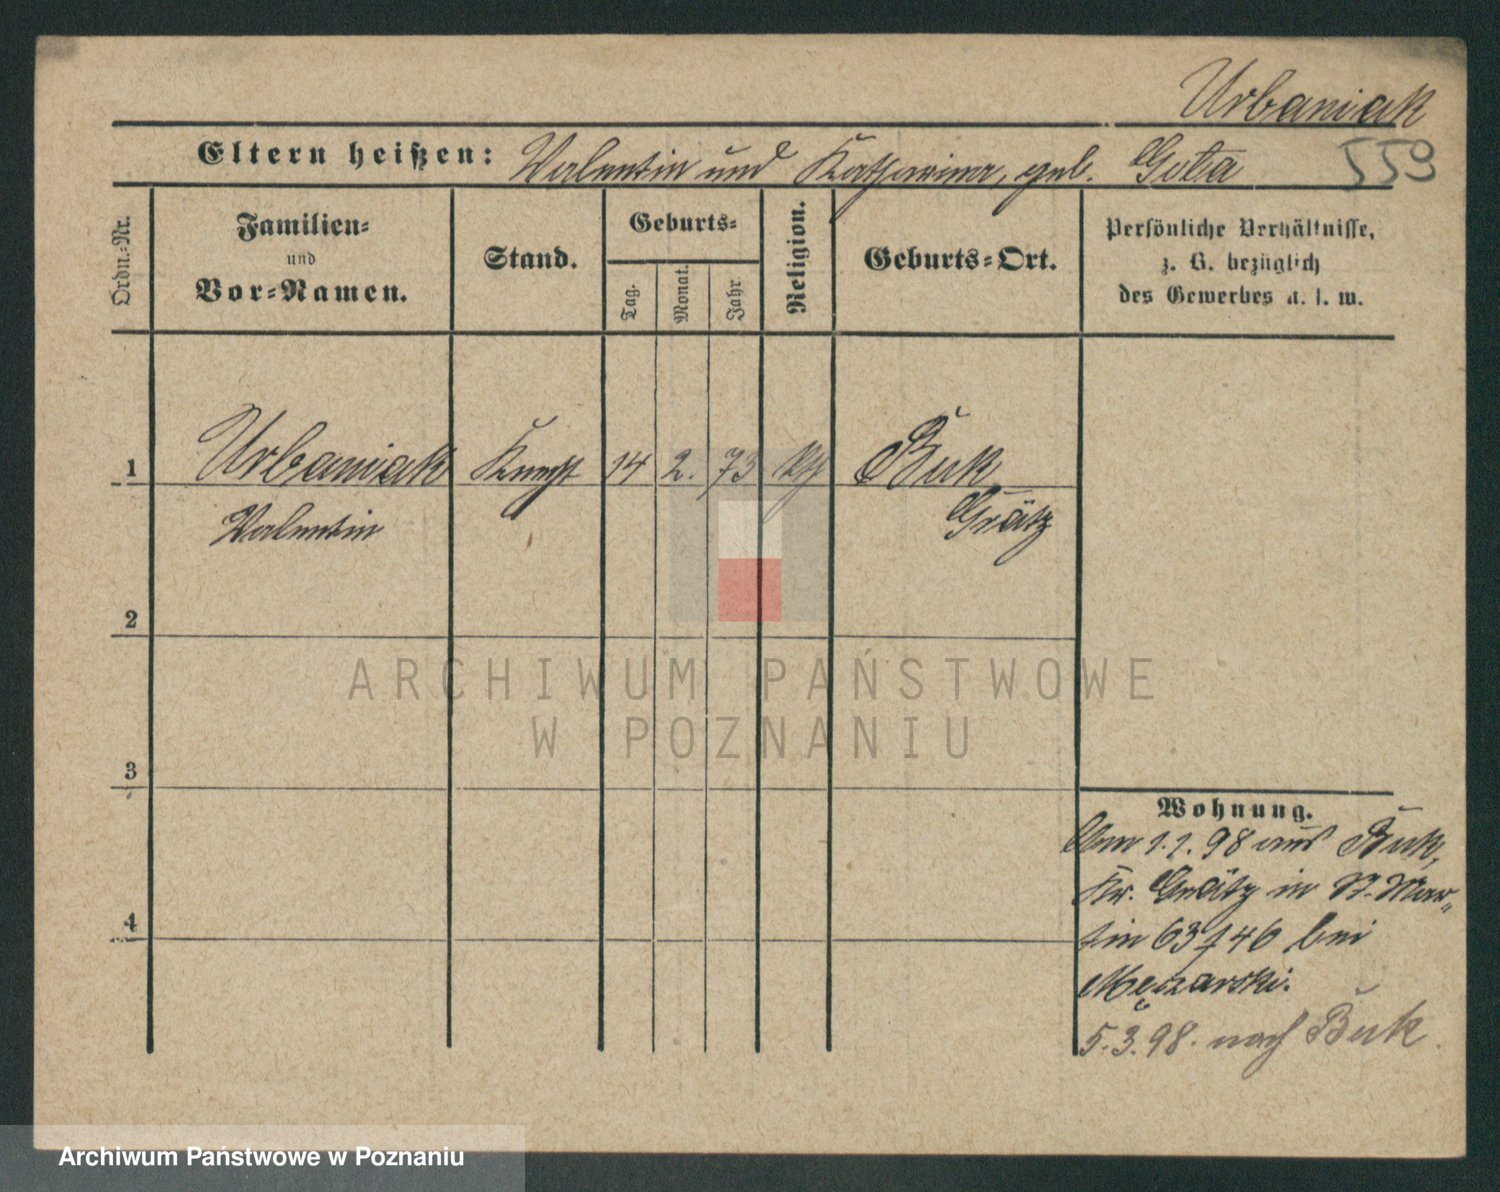 Urbaniak
Eltern heißen: Valentin und Katharina, geb. Guta
559
Ordn.-Nr.
Familien-
und
Vor-Namen.
Stand.
Geburts-
Tag.
Monat.
Jahr.
Religion.
Geburts-Ort.
Persönliche Verhältnisse,
z. B. bezüglich
des Gewerbes u. s. w.
1
Urbaniak
Knecht
14
2.
73
kth
Buk
Valentin
Grätz
2
3
4
Wohnung.
Am 1.1.98 aus Buk,
Kr. Grätz in St. Mar-
tin 63/46 bei
5.3.98. nach Buk.
ARCHIWUM PAŃSTWOWE
W POZNANIU
Archiwum Państwowe w Poznaniu